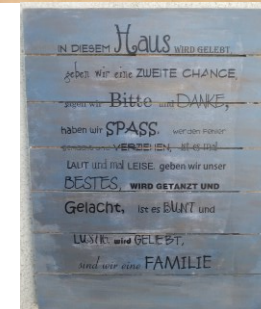 IN DIESEM Haus WIRD GELEBT,
geben wir eine ZWEITE CHANCE,
sagen wir Bitte und DANKE,
haben wir SPASS. werden Fehler
VERZIEHEN, ist es mal
LAUT und mal LEISE. geben wir unser
BESTES, WIRD GETANZT UND
Gelacht, ist es BUNT und
wird GELEBT,
sind wir eine FAMILIE